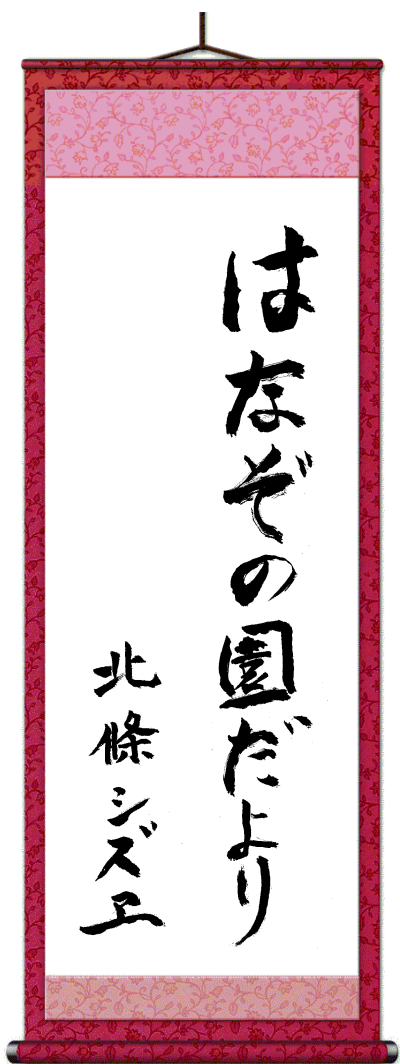 はなぞの園だより
北條シズヱ